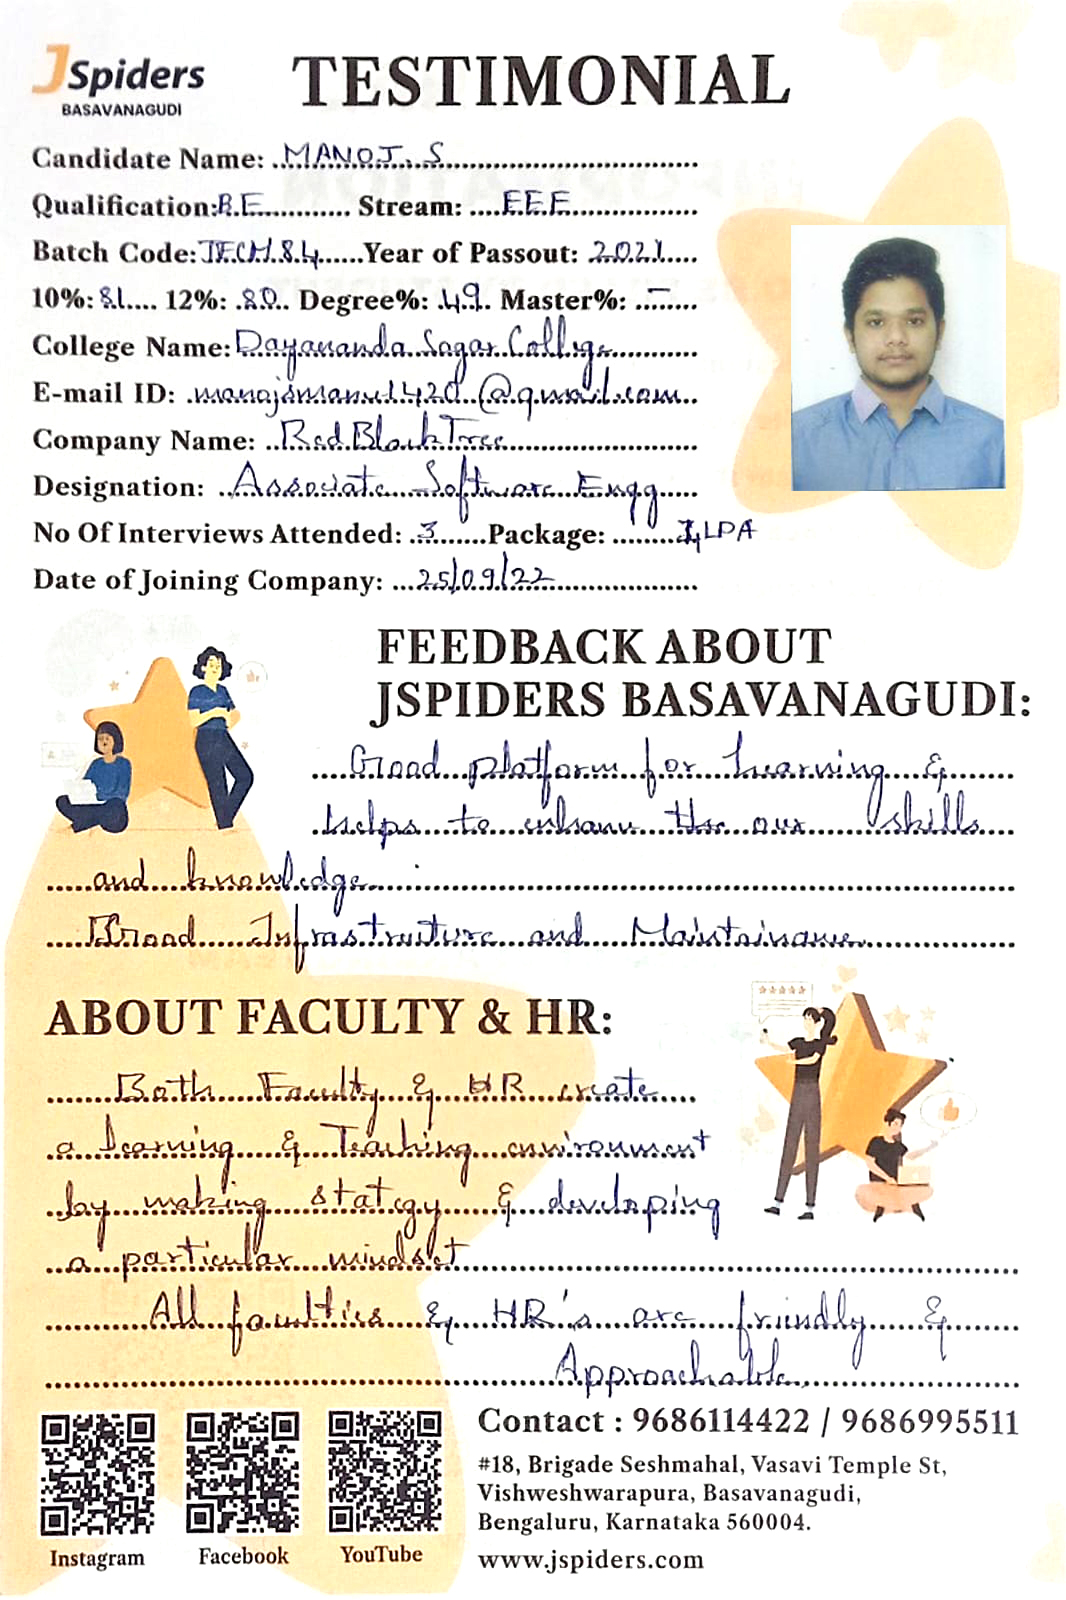 JSpiders
BASAVANAGUDI
TESTIMONIAL
Candidate Name: MANOJ. S
Qualification: B.E Stream: EEE
Batch Code: JECM84 Year of Passout: 2021
10%: 81 12%: 80 Degree%: 49 Master%: -
College Name: Dayananda Sagar College
E-mail ID: @gmail.com
Company Name: Red Black Tree
Designation: Associate Software Engg
No Of Interviews Attended: 3 Package: LPA
Date of Joining Company: 25/09/22
FEEDBACK ABOUT
JSPIDERS BASAVANAGUDI:
Good platform for Learning &
helps to our skills
and knowledge
Good Infrastructure and
ABOUT FACULTY & HR:
Both Faculty & HR create
a learning & Teaching environment
by making stategy & developing
a particular mindset
All faculties & HR's are friendly &
Approachable
Contact : 9686114422 / 9686995511
#18, Brigade Seshmahal, Vasavi Temple St,
Vishweshwarapura, Basavanagudi,
Bengaluru, Karnataka 560004.
Instagram Facebook YouTube
www.jspiders.com